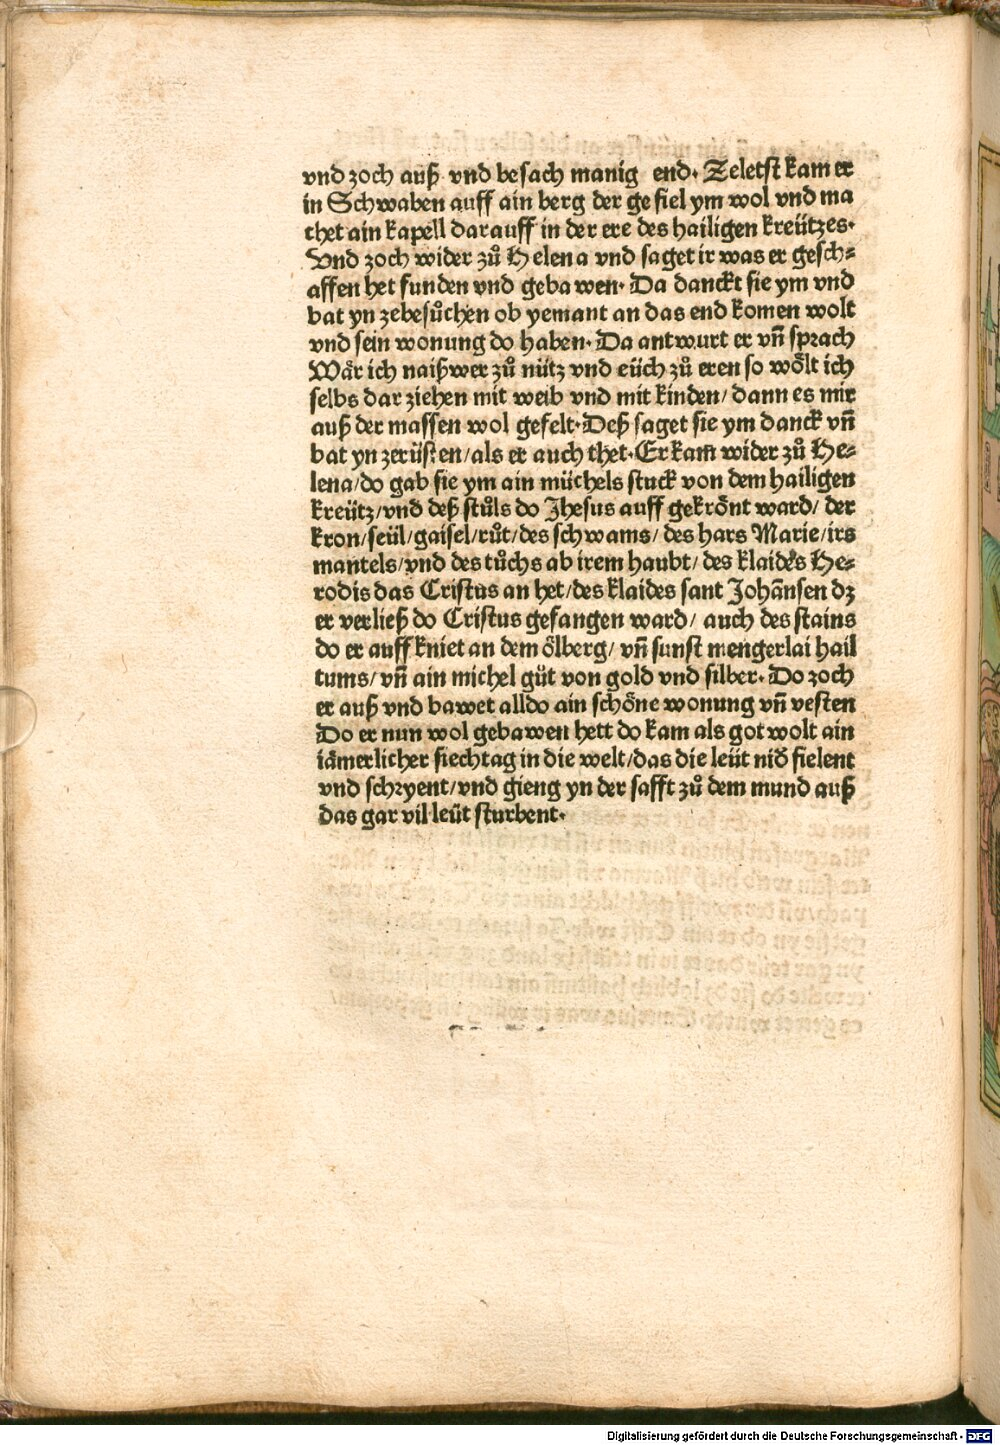 vnd zoch auß vnd besach manig end. Zeletst kam er
in Schwaben auff ain berg der gefiel ym wol vnd ma
chet ain kapell darauff in der ere des hailigen kreützes.
Vnd zoch wider zů Helena vnd saget ir was er gesch⸗
affen het funden vnd gebawen. Da danckt sie ym vnd
bat yn zebesůchen ob yemant an das end komen wolt
vnd sein wonung do haben. Da antwurt er vñ sprach
Wår ich naißwer zů nütz vnd eüch zů eren so wőlt ich
selbs dar ziehen mit weib vnd mit kinden/ dann es mir
auß der massen wol gefelt. Deß saget sie ym danck vñ
bat yn zerüsten/als er auch thet. Er kam wider zů He⸗
lena/do gab sie ym ain müchels stuck von dem hailigen
kreütz/vnd deß stůls do Jhesus auff gekrőnt ward/ der
kron/seül/gaisel/růt/des schwams/des hars Marie/irs
mantels/vnd des tůchs ab irem haubt/ des klaides He⸗
rodis das Cristus an het/des klaides sant Johãnsen dz
er verließ do Cristus gefangen ward/ auch des stains
do er auff kniet an dem őlberg/ vñ sunst mengerlai hail
tums/ vñ ain michel gůt von gold vnd silber. Do zoch
er auß vnd bawet alldo ain schőne wonung vñ vesten
Do er nun wol gebawen hett do kam als got wolt ain
iåmerlicher siechtag in die welt/das die leüt nid̃ fielent
vnd schryent/vnd gieng yn der safft zů dem mund auß
das gar vil leüt sturbent.
Digitalisierung gefördert durch die Deutsche Forschungsgemeinschaft - DFG